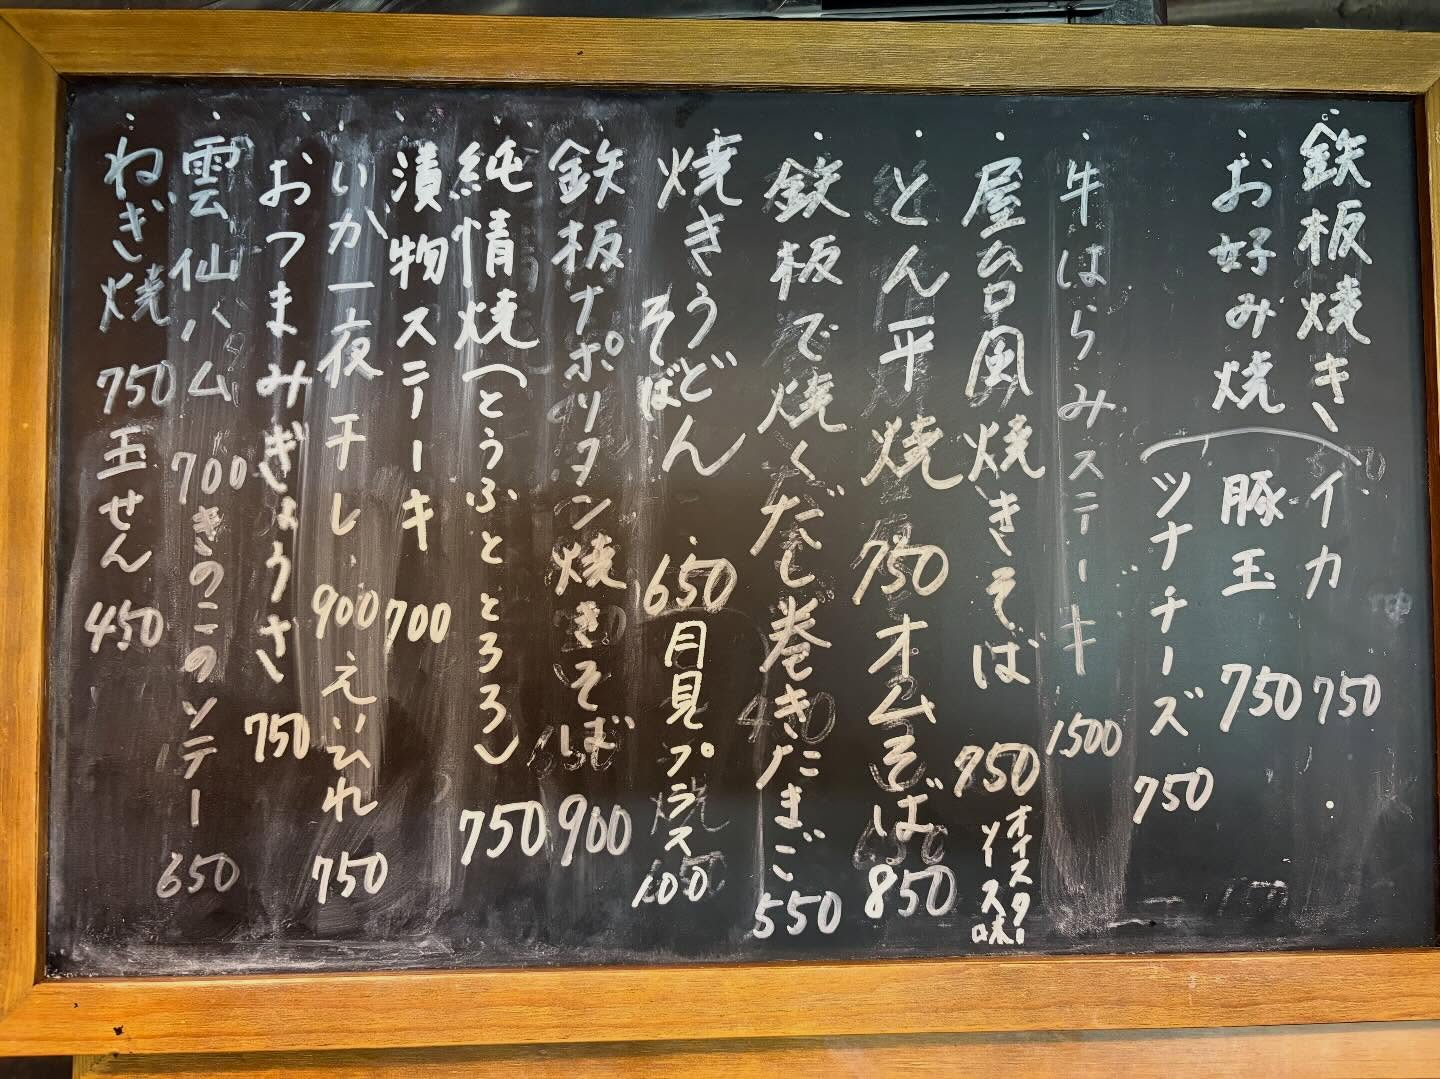 鉄板焼き
・お好み焼(イカ 750
豚玉 750
ツナチーズ 750
・牛はらみステーキ 1500
・屋台風焼きそば 750 オイスターソース味
・とん平焼 750 オムそば 850
・鉄板で焼くだし巻きたまご 550
・焼きうどん そば 650 月見プラス 100
・鉄板ナポリタン焼きそば 900
・純情焼(とうふととろろ) 750
・漬物ステーキ 700
・いか一夜干し 900 えいひれ 750
・おつまみぎょうさ 750
・雲仙ハム 700 きのこのソテー 650
・ねぎ焼 750 玉せん 450